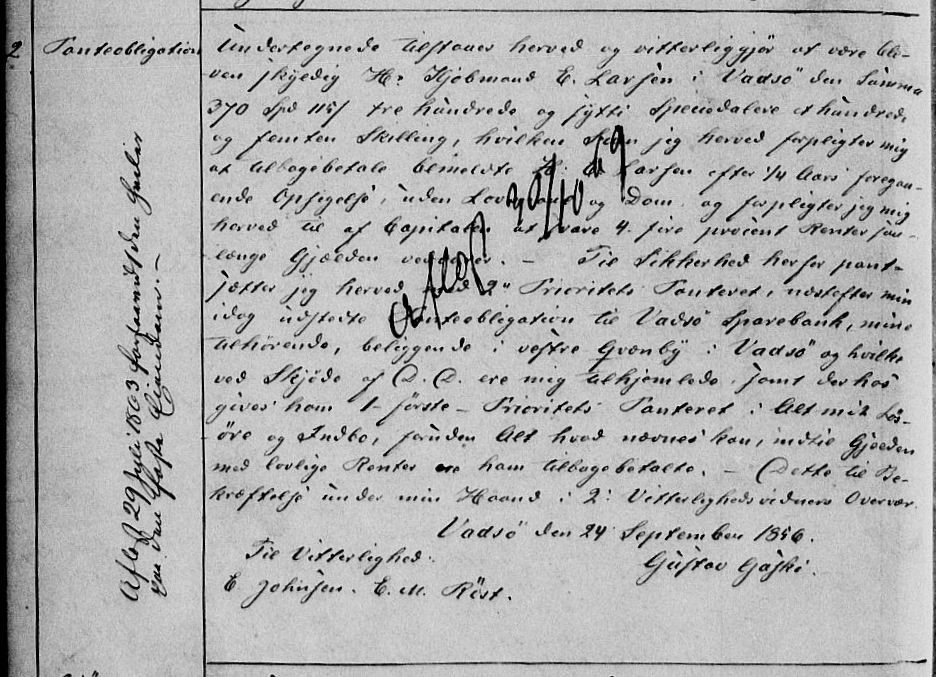 2
Panteobligation
Undertegnede tilstaaer herved og vitterliggjör at være ble-
ven skyldig Hr Kjöbmand E. Larsen i Vadsö den Summa
370 Spd 115 s tre hundrede og sytti Speciedalere et hundrede
og femten Skilling, hvilken Sum jeg herved forpligter mig
at tilbagebetale bemeldte Hr. E. Larsen efter 1/4 Aars foregaa-
ende Opsigelse, uden Lovmaal og Dom og forpligter jeg mig
herved til af Capitalen at svare 4. fire procent Renter saa-
længe Gjælden vedvarer. – Til Sikkerhed herfor pant-
sætter jeg herved med 2n Prioritets Panteret, næstefter min
idag udstedte Panteobligation til Vadsö Sparebank, mine
tilhörende, beliggende i vestre Qvænby i Vadsö og hvilke
ved Skjöde af D. D. ere mig tilhjemlede, samt derhos
gives ham 1– förste – Prioritets Panteret i Alt mit Lös-
öre og Indbo, foruden Alt hvad nævnes kan, indtil Gjælden
med lovlige Renter ere ham tilbagebetalte. – Dette til Be-
kræftelse under min Haand i 2: Vitterlighedsvidners Overvær.
Vadsö den 24 September 1856.
Til Vitterlighed:
Gustav Gaski.
E. Johnsen. E. M. Röst.
Aflæst 30/10 49
Aflyst 29 Juli 1863 forsaavidt den hviler
paa den faste Eiendom. –